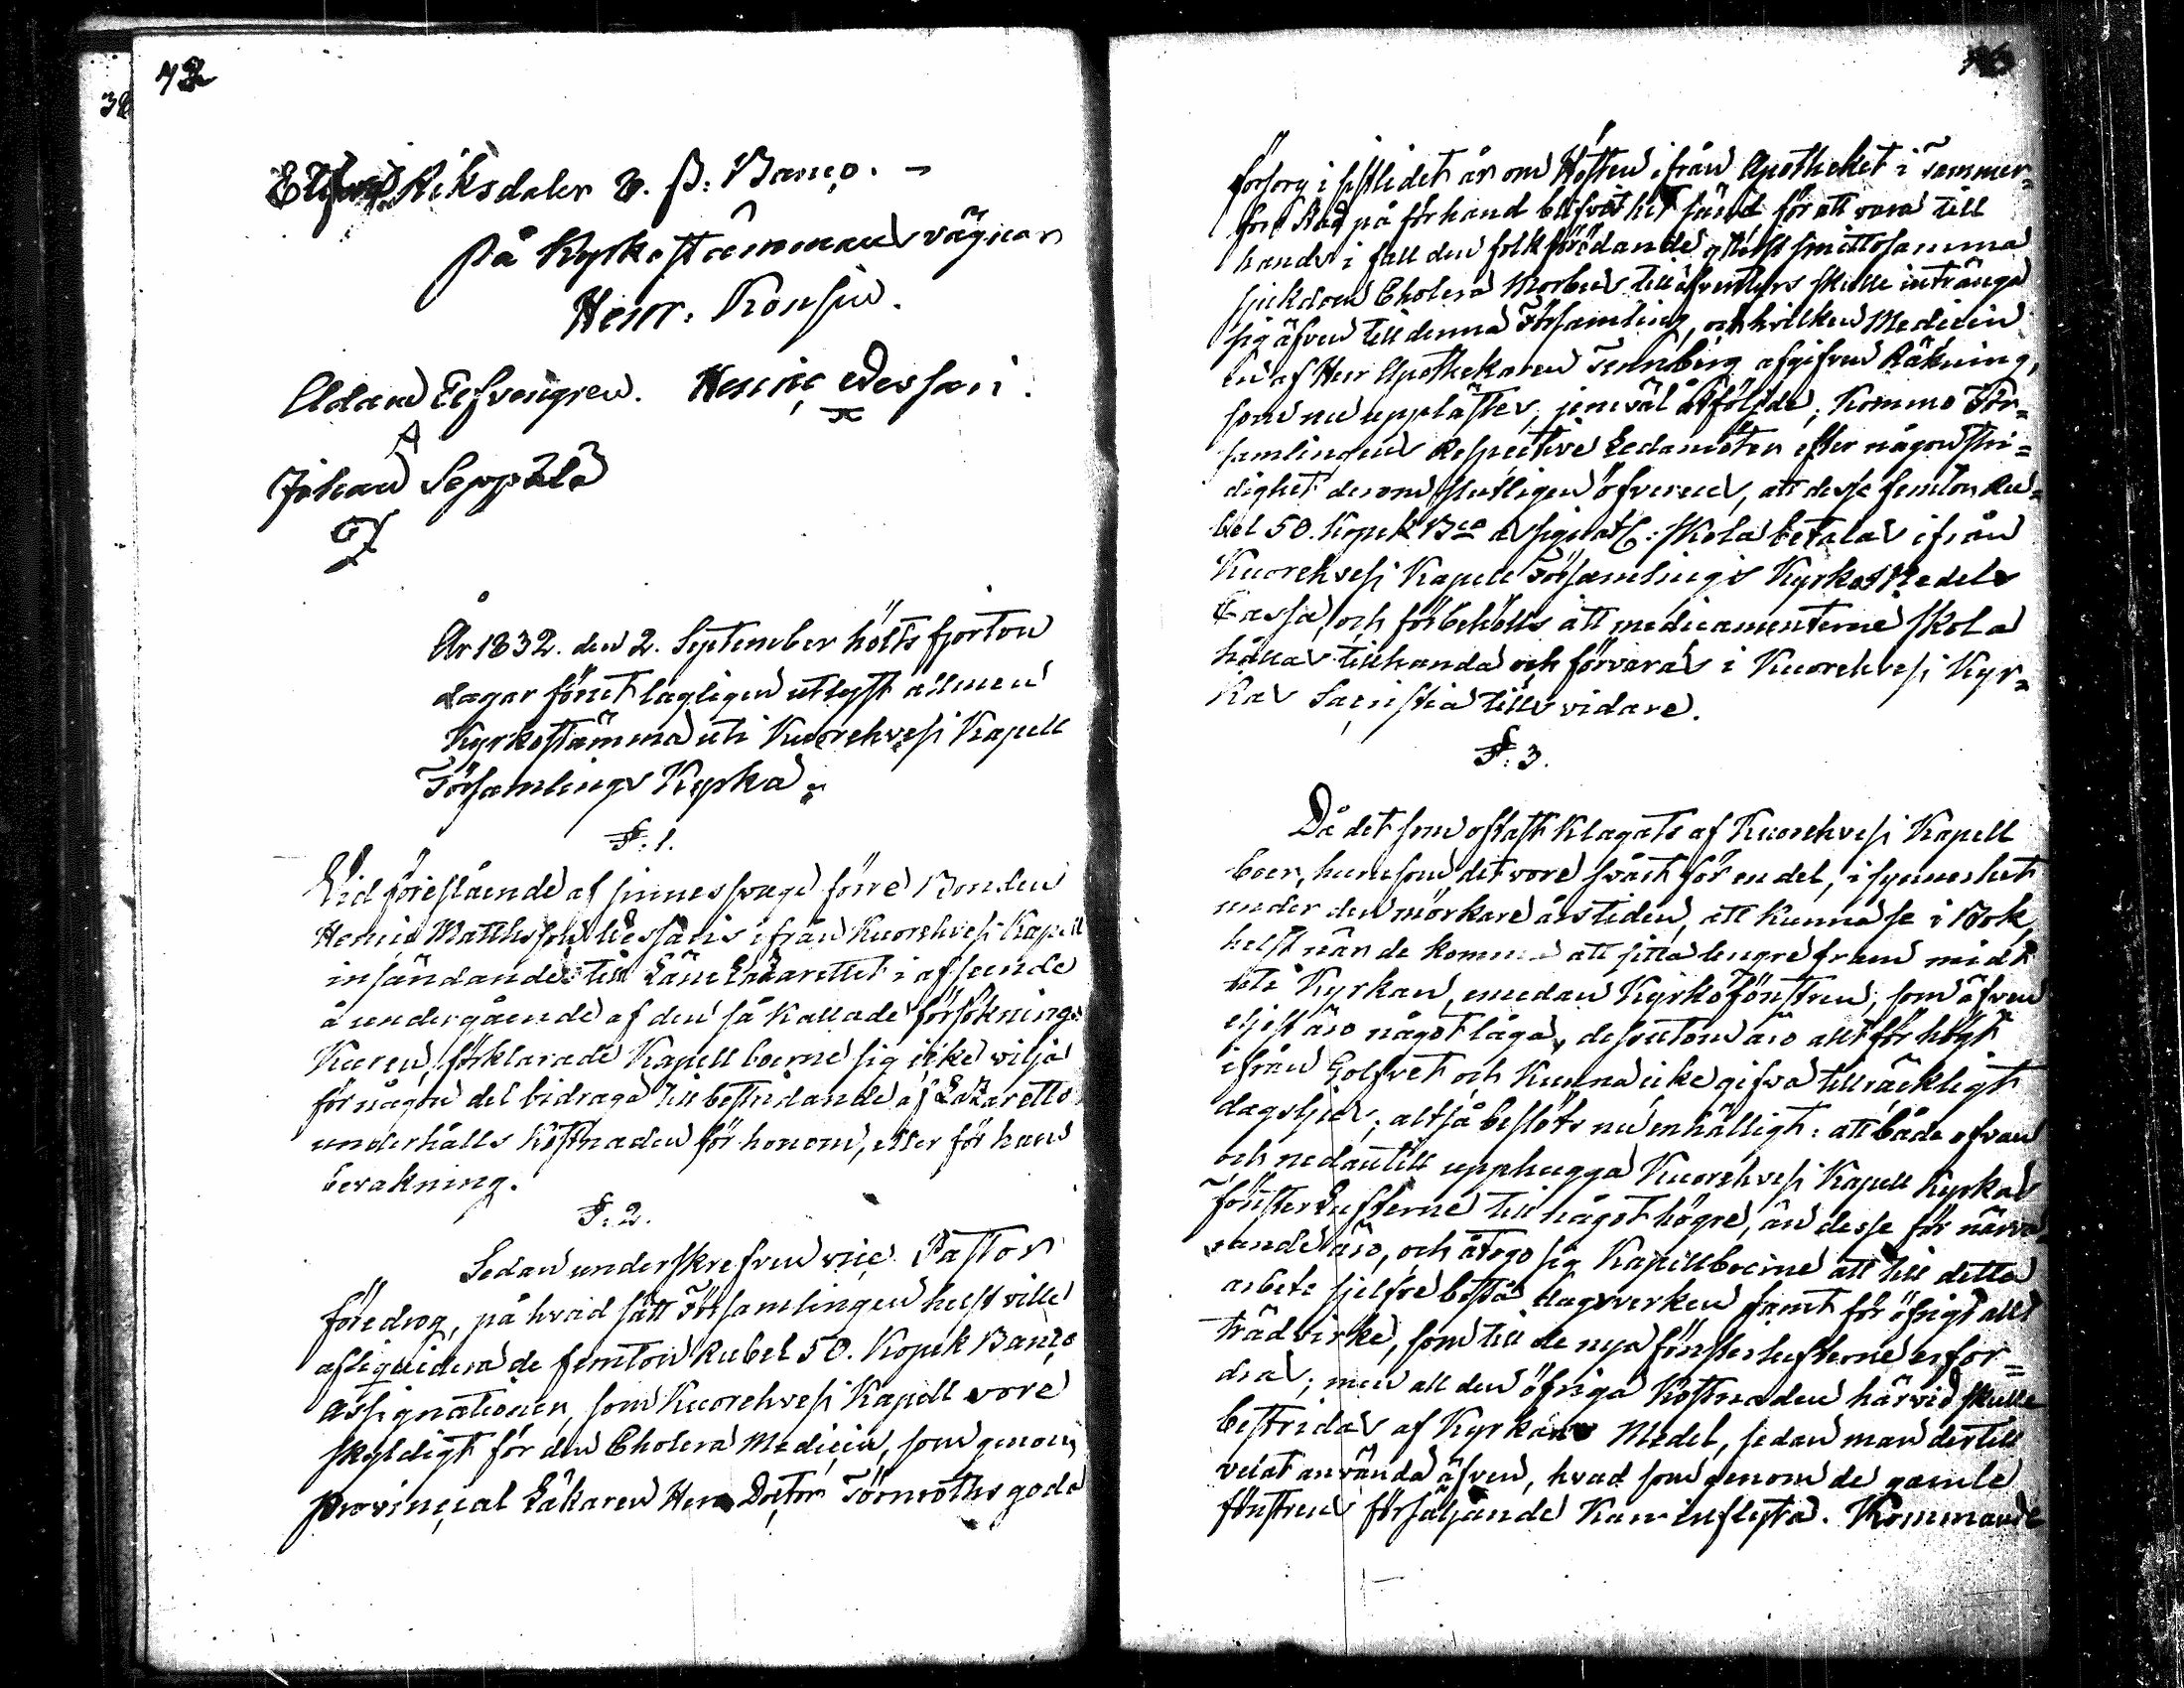 72
38
Riksdaler B. ß: Banco. –
På Kyrkostämmans vägnar
Henr: Konsin.
Adam Elfvengren. Henric
Johan Seppälä
År 1832. den 2. September hölts fjorton
dagar förut lagligen utlyst allmen
Kyrkostämma uti Kuorehvesi Kapell
Församlings Kyrka.
§. 1.
Vid föreslående af sinnessvage förre Bonden
Henric Matthsson ifrån Kuorehvesi Kapell
insändande till Läne Lazarettet i afseende
å undergående af den så kallade försöknings
Kuren, förklarade Kapellboerne sig icke vilja
för någon del bidraga till bestridande af Lazaretts
underhålls kostnaden för honom, eller för hans
bevakning.
§. 2.
Sedan underskrefven vice Pastor
föredrog, på hvad sätt Församlingen helst ville
afliquidera de femton Rubel 50. Kopek Banco
Assignationer, som Kuorehvesi Kapell vore
skyldigt för den Cholera Medicin, som genom
provincial Läkaren Herr Doctor Törnroths goda
försorg i sistledet år om Hösten ifrån Apotheket i Tammer-
fors Stad på förhand blifvit hit sänd för att vara till
hands i fall den folkförödande smittosamma
sjukdom Cholera Morbus till äfventyrs skulle intränga
sig äfven till denna Församling, och hvilken Medicin
en af Herr Apothekaren Tennberg afgifven Räkning,
som nu upplästes, jemväl åtföljde; Kommo För-
samlingens Respective Ledamöter efter någon stri-
dighet derom slutligen öfverens, att desse femton Ru-
bel 50. Kopek Bco Assignat: skola betalas ifrån
Kuorehvesi Kapell Församlings Kyrkos Medels
Cassa, och förbehölls att medicamenterne skola
hållas tillhanda och förvaras i Kuorehvesi Kyr-
kas Sacristia tills vidare.
§. 3.
Då det som oftast klagats af Kuorehvesi Kapell
boer, hurusom det vore svårt för en del, i synnerhet
under den mörkare årstiden, att kunna se i Bok,
helst när de komma att sitta lengre fram midt
uti Kyrkan, emedan Kyrkofönstren, som äfven
eljest äro något låga, dessutom äro alt för högt
ifrån Golfvet och kunna icke gifva tillräckligt
dagsljus; altså beslöts nu enhälligt: att både ofvan
och nedantill upphugga Kuorehvesi Kapell Kyrkas
Fönster Lufterne till något högre, än desse för närva-
rande äro, och åtogo sig Kapellboerne att till detta
arbete sjelfve bestå dagsverken samt för öfrigt allt
trädvirke, som till de nya fönsterlufterne erfor-
dras; men all den öfriga kostnaden härvid skulle
bestridas af Kyrkans Medel, sedan man dertill
velat använda äfven, hvad som genom de gamle
fönstrens försäljande kan inflyta. Kommande